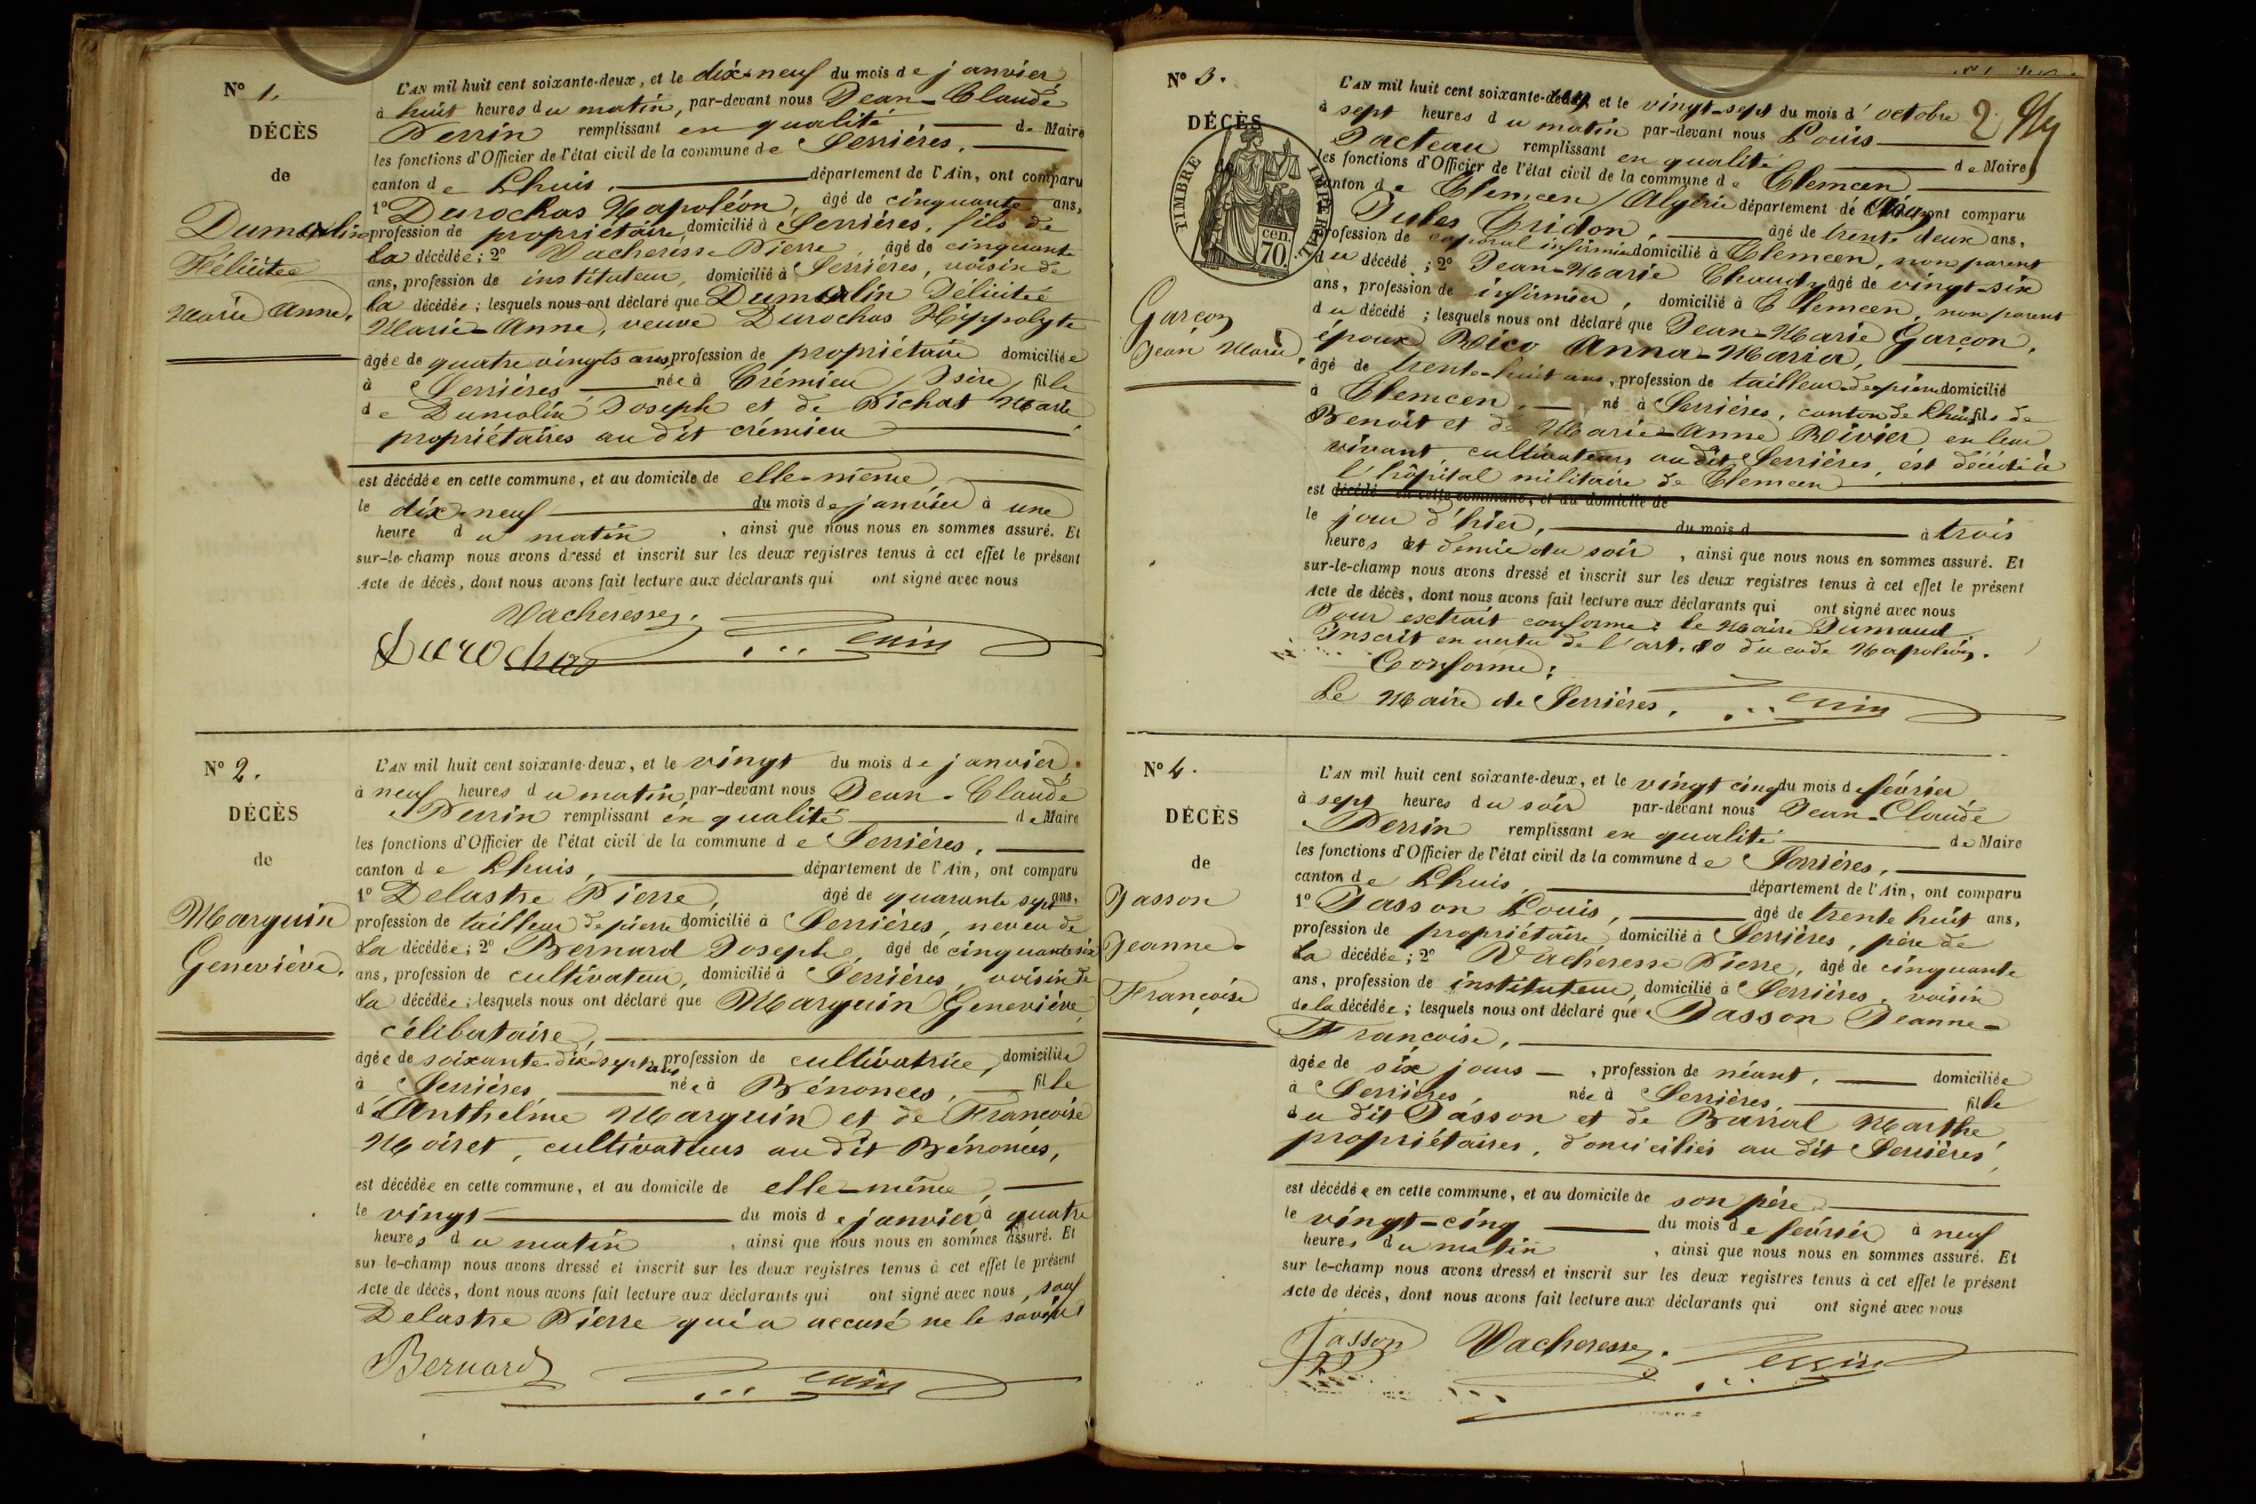 N° 1.
DÉCÈS
de
Dumolin
Félicitée
Marie Anne.
L'AN mil huit cent soixante-deux, et le dix-neuf du mois de janvier
à huit heures du matin, par-devant nous Jean-Claude
Perrin remplissant en qualité de Maire
les fonctions d'Officier de l'état civil de la commune de Serrières,
canton de Lhuis, département de l'Ain, ont comparu
1° Durochas Napoléon, âgé de cinquante ans,
profession de propriétaire, domicilié à Serrières, fils de
la décédée; 2° Vacheresse Pierre, âgé de cinquante
ans, profession de instituteur, domicilié à Serrières, voisin de
la décédée; lesquels nous ont déclaré que Dumolin Félicitée
Marie-Anne, veuve Durochas Hyppolyte
âgée de quatre vingts ans, profession de propriétaire domiciliée
à Serrières née à Crémieu (Isère) fille
de Dumolin Joseph et de Pichat Marie
propriétaires au dit crémieu
est décédée en cette commune, et au domicile de elle-même,
le dix-neuf du mois de janvier à une
heure du matin, ainsi que nous nous en sommes assuré. Et
sur-le-champ nous avons dressé et inscrit sur les deux registres tenus à cet effet le présent
Acte de décès, dont nous avons fait lecture aux déclarants qui ont signé avec nous
Vacheresse.
Durochas Perrin
N° 2.
DÉCÈS
de
Marguin
Geneviève.
L'AN mil huit cent soixante-deux, et le vingt du mois de janvier
à neuf heures du matin, par-devant nous Jean-Claude
Perrin remplissant en qualité de Maire
les fonctions d'Officier de l'état civil de la commune de Serrières,
canton de Lhuis, département de l'Ain, ont comparu
1° Delastre Pierre, âgé de quarante sept ans,
profession de tailleur de pierre domicilié à Serrières, neveu de
la décédée; 2° Bernard Joseph, âgé de cinquante six
ans, profession de cultivateur, domicilié à Serrières, voisin de
la décédée; lesquels nous ont déclaré que Marguin Geneviève,
célibataire,
âgée de soixante-dix-sept ans profession de cultivatrice, domiciliée
à Serrières, née à Bénonces, fille
d'Anthelme Marguin et de Françoise
Moiret, cultivateurs au dit Bénonces,
est décédée en cette commune, et au domicile de elle-même,
le vingt du mois de janvier à quatre
heures du matin, ainsi que nous nous en sommes assuré. Et
sur-le-champ nous avons dressé et inscrit sur les deux registres tenus à cet effet le présent
Acte de décès, dont nous avons fait lecture aux déclarants qui ont signé avec nous, sauf
Delastre Pierre qui a accusé ne le savoir
Bernard Perrin
N° 3.
DÉCÈS
de
TIMBRE IMPERIAL
cen.
70
Garçon
Jean Marie.
L'AN mil huit cent soixante- et le vingt-sept du mois d'octobre
à sept heures du matin par-devant nous Louis
remplissant en qualité de Maire
les fonctions d'Officier de l'état civil de la commune de Tlemcen
canton de Tlemcen (Algérie département de ont comparu
Jules Tridon, âgé de trente deux ans,
profession de caporal infirmier domicilié à Tlemcen, non parent
du décédé; 2° Jean-Marie Chaudy âgé de vingt-six
ans, profession de infirmier, domicilié à Tlemcen, non parent
du décédé; lesquels nous ont déclaré que Jean-Marie Garçon,
époux Rico Anna-Maria,
âgé de trente-huit ans, profession de tailleur de pierre domicilié
à Tlemcen, né à Serrières, canton de Lhuis, fils de
Benoit et de Marie-Anne Rivier en leur
vivant, cultivateurs au dit Serrières, est décédé à
l'hôpital militaire de Tlemcen
est décédé en cette commune, et au domicile de
le jour d'hier, du mois d à trois
heures et demie du soir, ainsi que nous nous en sommes assuré. Et
sur-le-champ nous avons dressé et inscrit sur les deux registres tenus à cet effet le présent
Acte de décès, dont nous avons fait lecture aux déclarants qui ont signé avec nous
Pour extrait conforme: le Maire
Inscrit en vertu de l'art. 80 du code Napoléon.
Conforme:
Le Maire de Serrières, Perrin
N° 4.
DÉCÈS
de
Jasson
Jeanne-
Françoise
L'AN mil huit cent soixante-deux, et le vingt cinq du mois de février
à sept heures du soir par-devant nous Jean-Claude
Perrin remplissant en qualité de Maire
les fonctions d'Officier de l'état civil de la commune de Serrières,
canton de Lhuis, département de l'Ain, ont comparu
1° Jasson Louis, âgé de trente huit ans,
profession de propriétaire domicilié à Serrières, père de
la décédée; 2° Vacheresse Pierre, âgé de cinquante
ans, profession de instituteur, domicilié à Serrières, voisin
de la décédée; lesquels nous ont déclaré que Jasson Jeanne-
Françoise,
âgée de six jours, profession de néant, domiciliée
à Serrières, née à Serrières, fille
du dit Jasson et de Barral Marthe,
propriétaires, domiciliés au dit Serrières,
est décédée en cette commune, et au domicile de son père
le vingt-cinq du mois de février à neuf
heures du matin, ainsi que nous nous en sommes assuré. Et
sur le-champ nous avons dressé et inscrit sur les deux registres tenus à cet effet le présent
Acte de décès, dont nous avons fait lecture aux déclarants qui ont signé avec nous
Jasson Vacheresse. Perrin